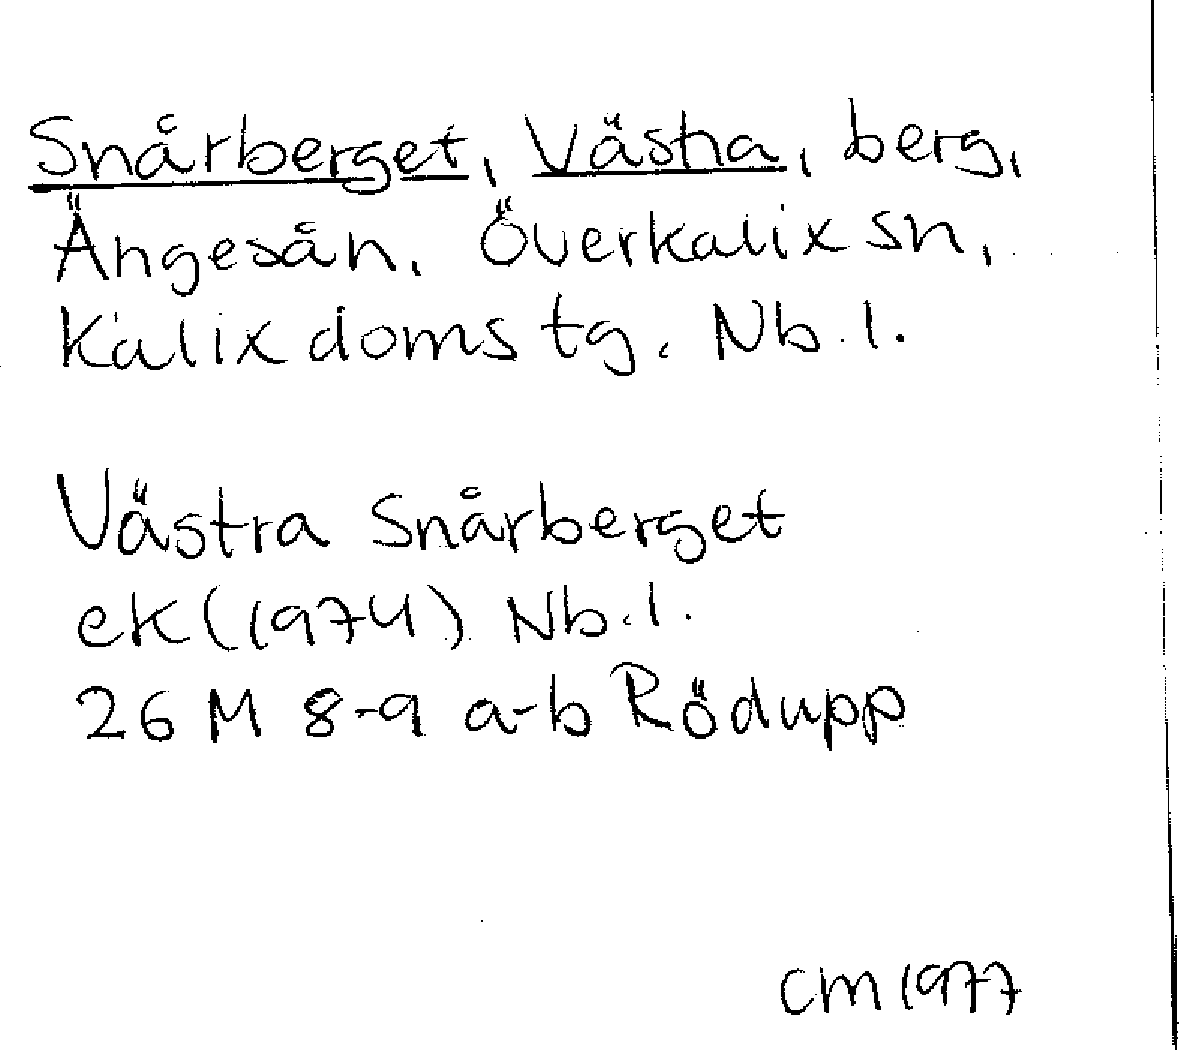 Snårberget, Västra, berg,
Ängesån, Överkalix sn,
Kalix doms tg. Nb. l.
Västra Snårberget
ek (1974) Nb. l.
26 M 8-9 a-b Rödupp
CM 1977